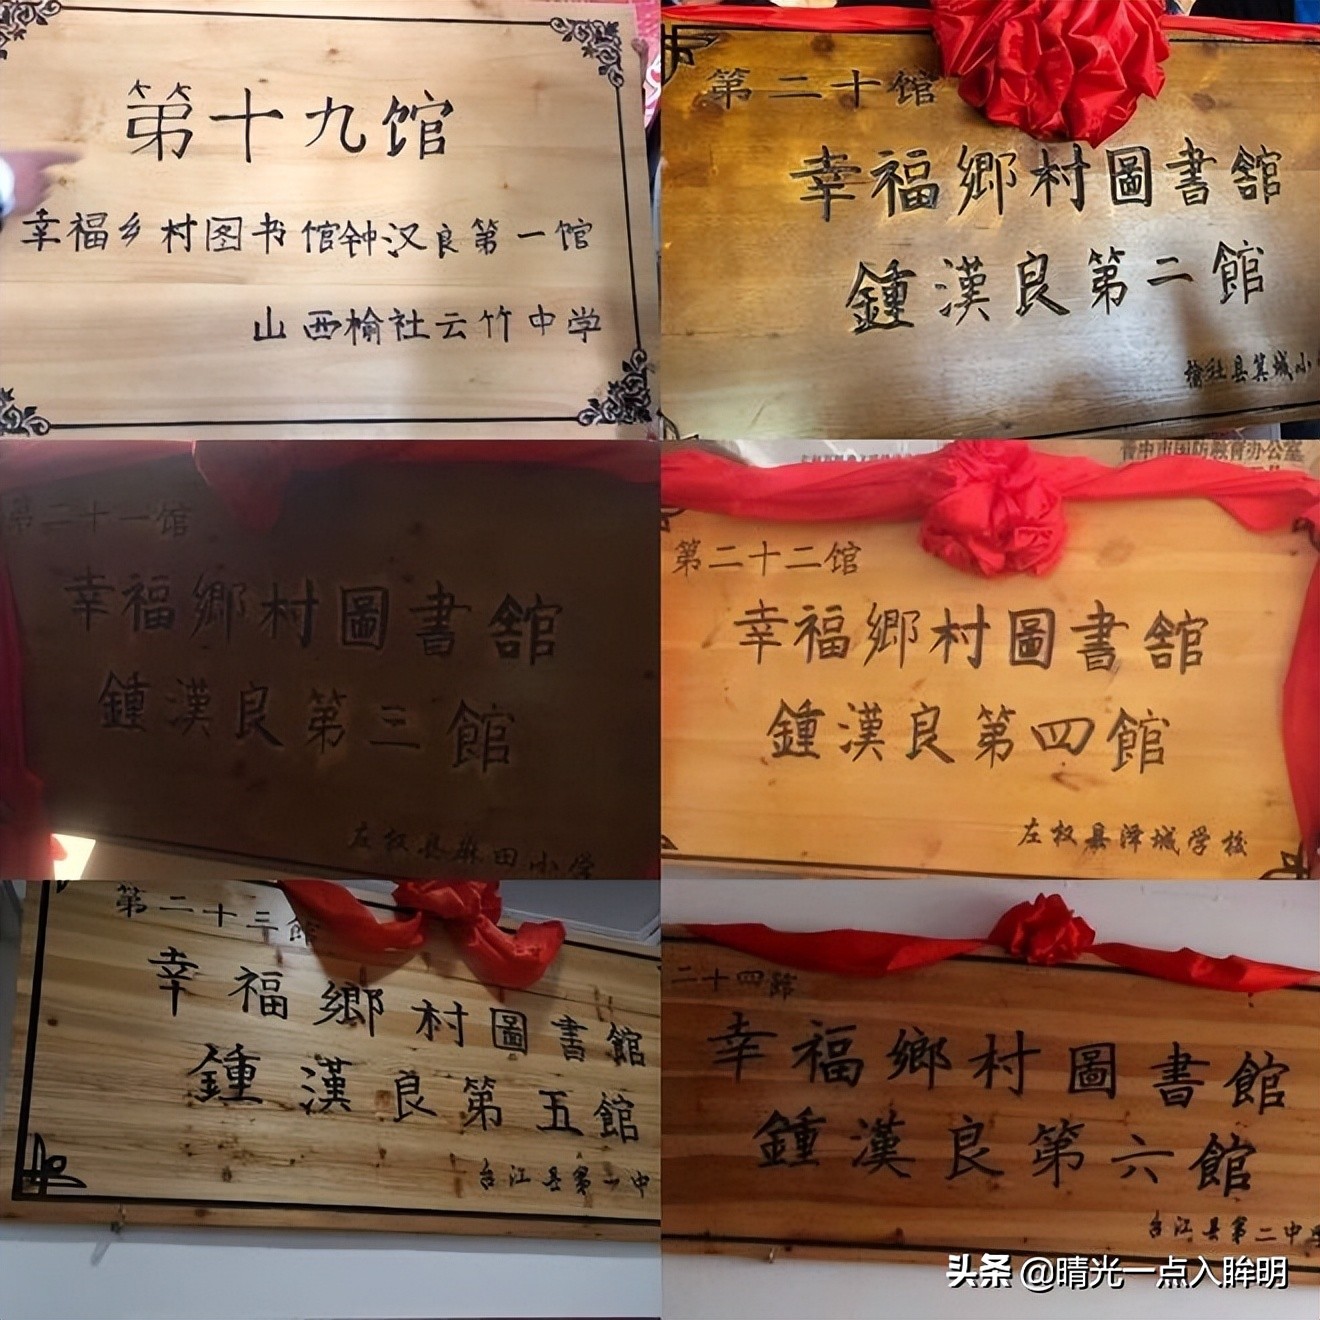 第十九馆
幸福乡村图书馆钟汉良第一馆
山西榆社云竹中学
第二十馆
幸福鄉村圖書舘
鍾漢良第二館
榆社县箕城小
第二十一馆
幸福鄉村圖書舘
鍾漢良第三館
左权县麻田小学
晋中市国防教育办公室
第二十二馆
幸福鄉村圖書舘
鍾漢良第四館
左权县泽城学校
第二十三館
幸福鄉村圖書館
鍾漢良第五館
台江县第二中
二十四館
幸福鄉村圖書館
鍾漢良第六館
台江县第二中学
头条 @晴光一点入眸明